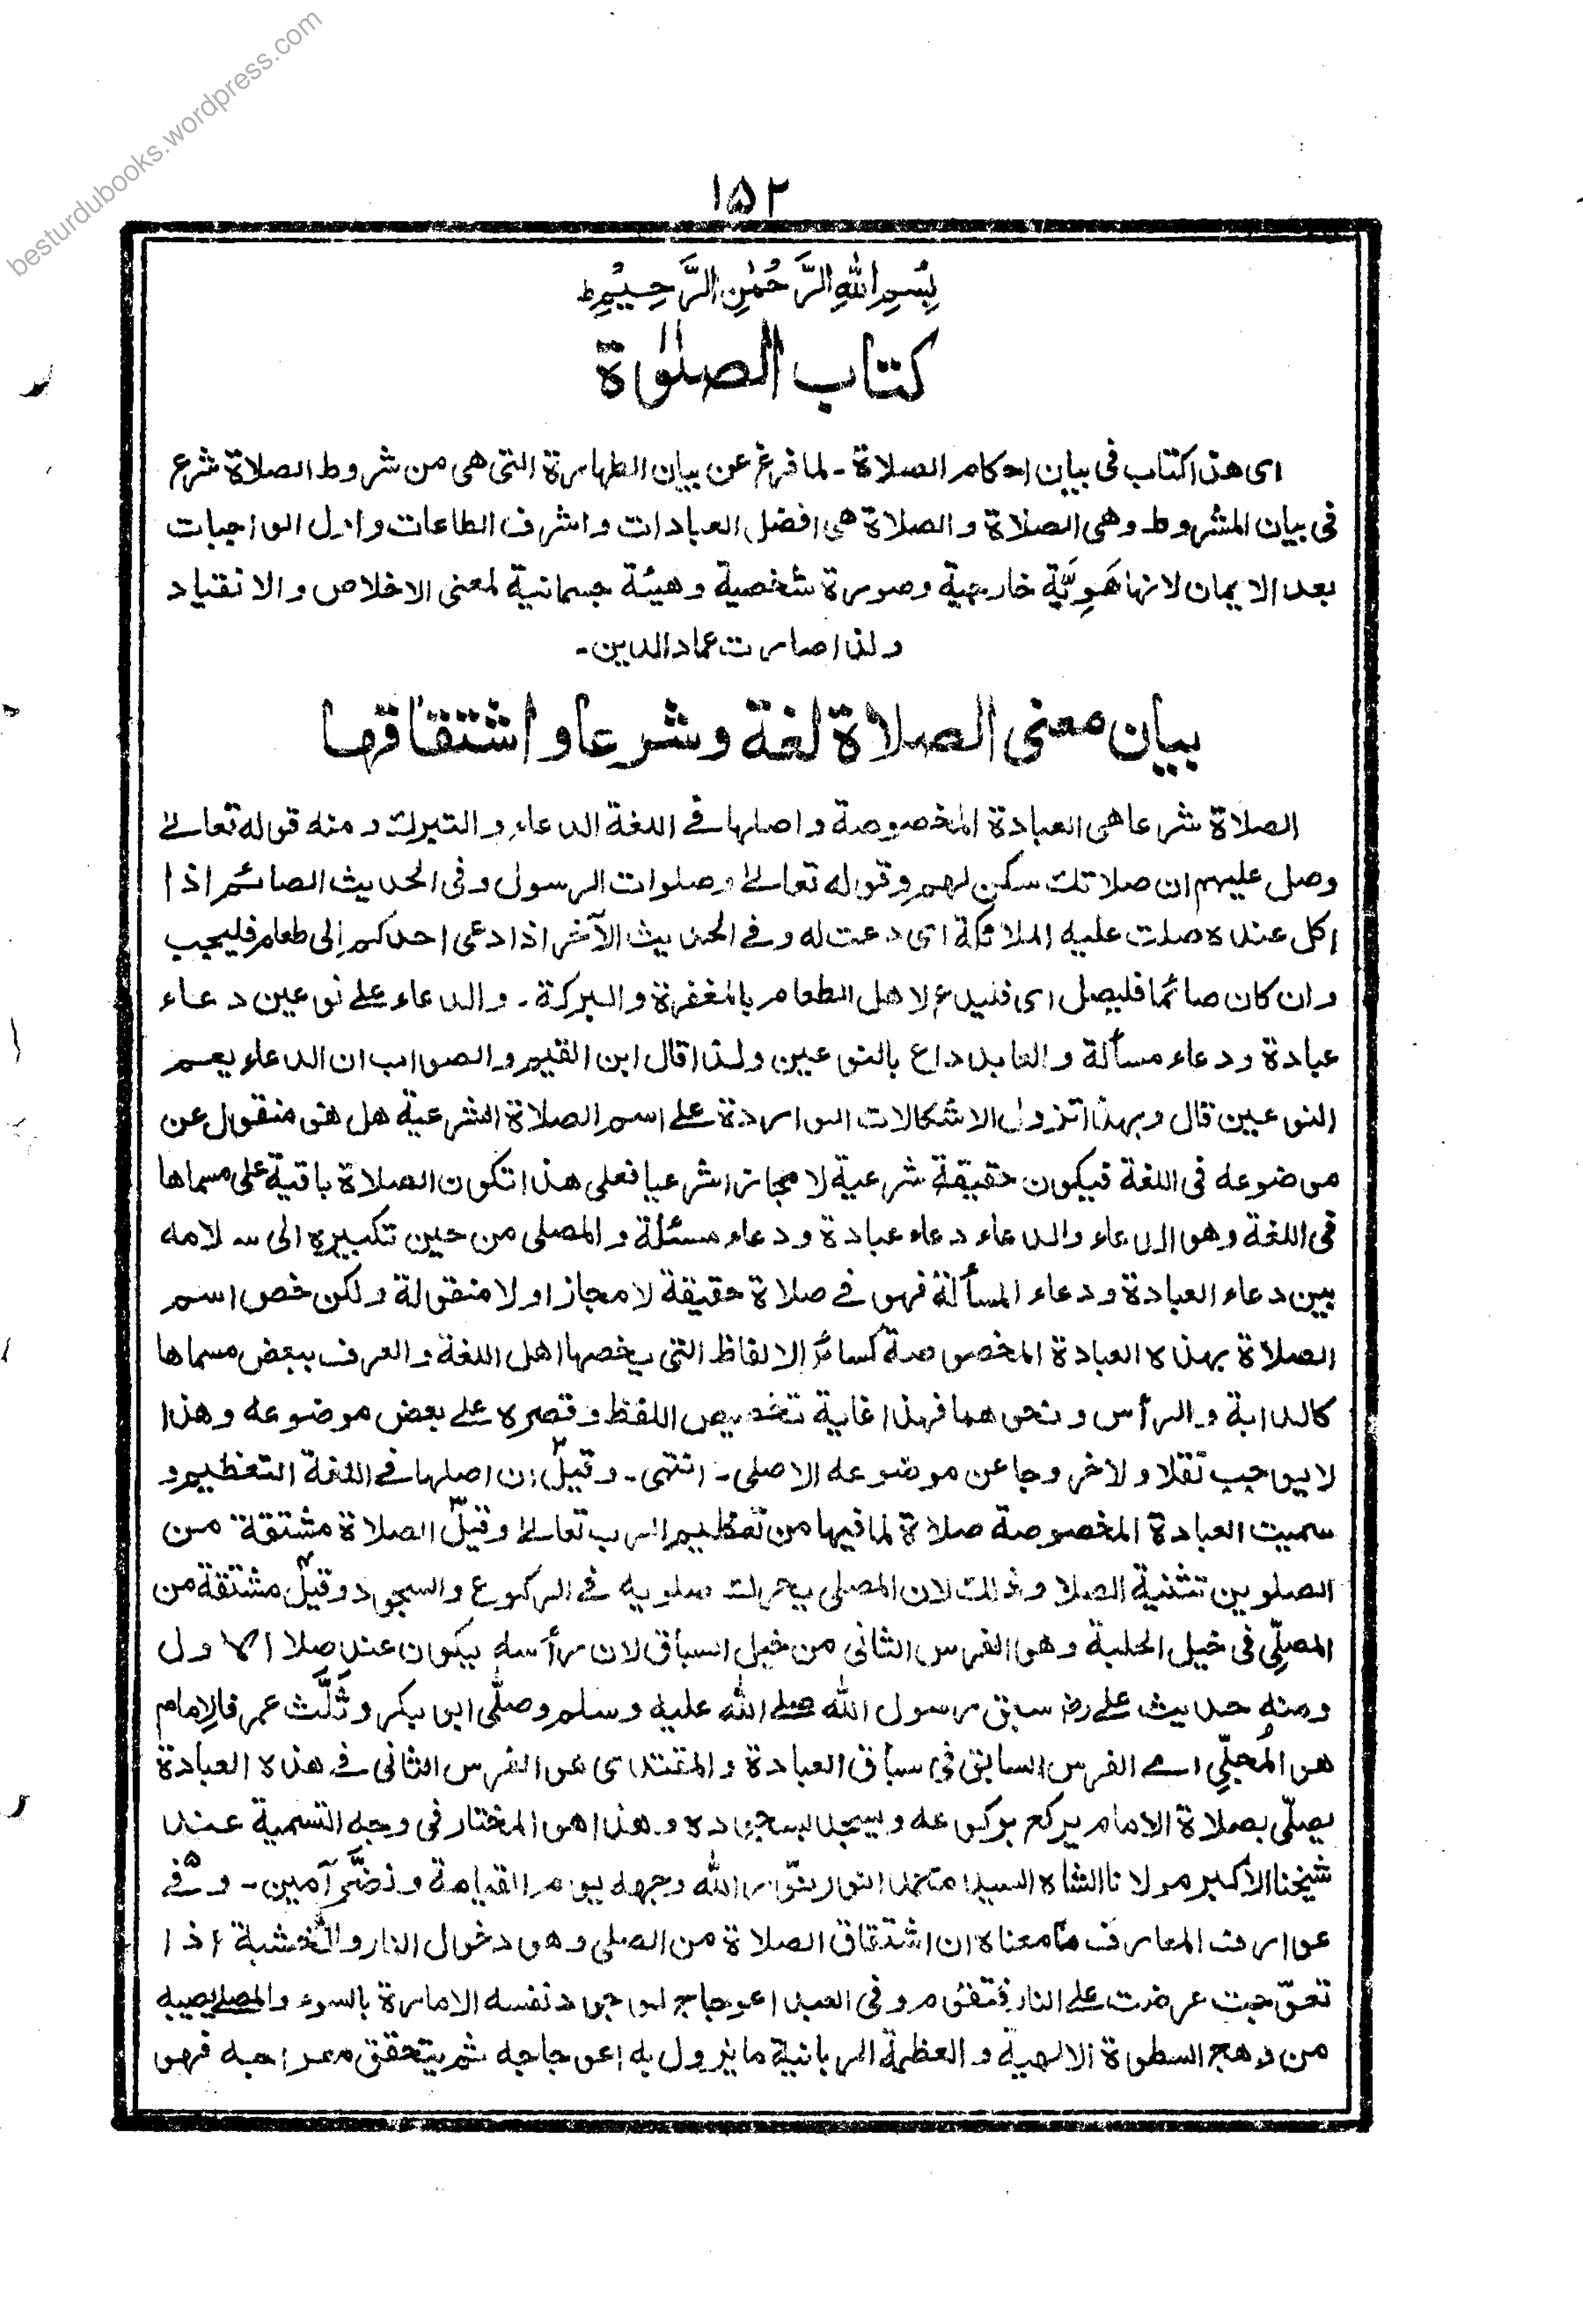 besturdubooks.wordpress.com
١٥٢
بِسْمِ اللهِ الرَّحْمٰنِ الرَّحِيْمِ ط
كتاب الصلوٰة
اى هذا كتاب فى بيان احكام الصلاة ـ لما فرغ عن بيان الطهارة التى هى من شروط الصلاة شرع
فى بيان المشروط وهى الصلاة و الصلاة هى افضل العبادات و اشرف الطاعات و اول الواجبات
بعد الايمان لانها هَوِيَّة خارجية وصورة شخصية و هيئة جسمانية لمعنى الاخلاص و الانقياد
و لذا صارت عماد الدين ـ
بيان معنى الصلاة لغة و شرعا و اشتقاقها
الصلاة شرعا هى العبادة المخصوصة و اصلها فے اللغة الدعاء و التبرك و منه قوله تعالےٰ
وصل عليهم ان صلاتك سكن لهم و قوله تعالےٰ وصلوات الرسول و فى الحديث الصائم اذا
اكل عنده صلت عليه الملائكة اى دعت له و فے الحديث الآخر اذا دعى احدكم إلى طعام فليجب
و ان كان صائما فليصل اى فليدع لاهل الطعام بالمغفرة و البركة ـ و الدعاء علے نوعين دعاء
عبادة و دعاء مسألة و العابد داع بالنوعين و لذا قال ابن القيم و الصواب ان الدعاء يعم
النوعين قال و بهذا تزول الاشكالات الواردة علے اسم الصلاة الشرعية هل هى منقول عن
موضوعه فى اللغة فيكون حقيقة شرعية لا مجازا شرعيا فعلى هذا تكون الصلاة باقية على مسماها
فى اللغة و هو الدعاء و الدعاء دعاء عبادة و دعاء مسئلة و المصلى من حين تكبيره الى سلامه
بين دعاء العبادة و دعاء المسألة فهو فے صلاة حقيقة لا مجازا و لا منقولة و لكن خص اسم
الصلاة بهذه العبادة المخصوصة كسائر الالفاظ التى يخصها اهل اللغة و العرف ببعض مسماها
كالدابة و الرأس و نحوهما فهذا غاية تخصيص اللفظ و قصره علے بعض موضوعه و هذا
لا يوجب نقلا و لا خروجا عن موضوعه الاصلى ـ انتهى ـ و قيل٢ ان اصلها فے اللغة التعظيم و
سميت العبادة المخصوصة صلاة لما فيها من تعظيم الرب تعالےٰ و قيل٣ الصلاة مشتقة من
الصلوين تثنية الصلا و ذلك لان المصلى يحرك صلويه فے الركوع و السجود و قيل٤ مشتقة من
المصلِّى فى خيل الحلبة و هو الفرس الثانى من خيل السباق لان رأسه يكون عند صلا الاول
و منه حديث علے رض سبق رسول الله صلے الله عليه و سلم وصلَّى ابو بكر و ثَلَّث عمر فالإمام
هو المُجلِّي اے الفرس السابق فى سباق العبادة و المقتدى هو الفرس الثانى فے هذه العبادة
يصلّى بصلاة الامام يركع بركوعه و يسجد بسجوده و هذا هو المختار فى وجه التسمية عند
شيخنا الأكبر مولانا الشاه السيد محمد انور نوّر الله وجهه يوم القيامة و نضَّر آمين ـ و٥ فے
عوارف المعارف ما معناه ان اشتقاق الصلاة من الصلى و هو دخول النار و الخشبة اذا
تعوّجت عرضت علے النار فتقوم و فى العبد اعوجاج لوجود نفسه الامارة بالسوء و المصلے يصيبه
من وهج السطوة الالهية و العظمة الربانية ما يزول به اعوجاجه ثم يتحقق معراجه فهو